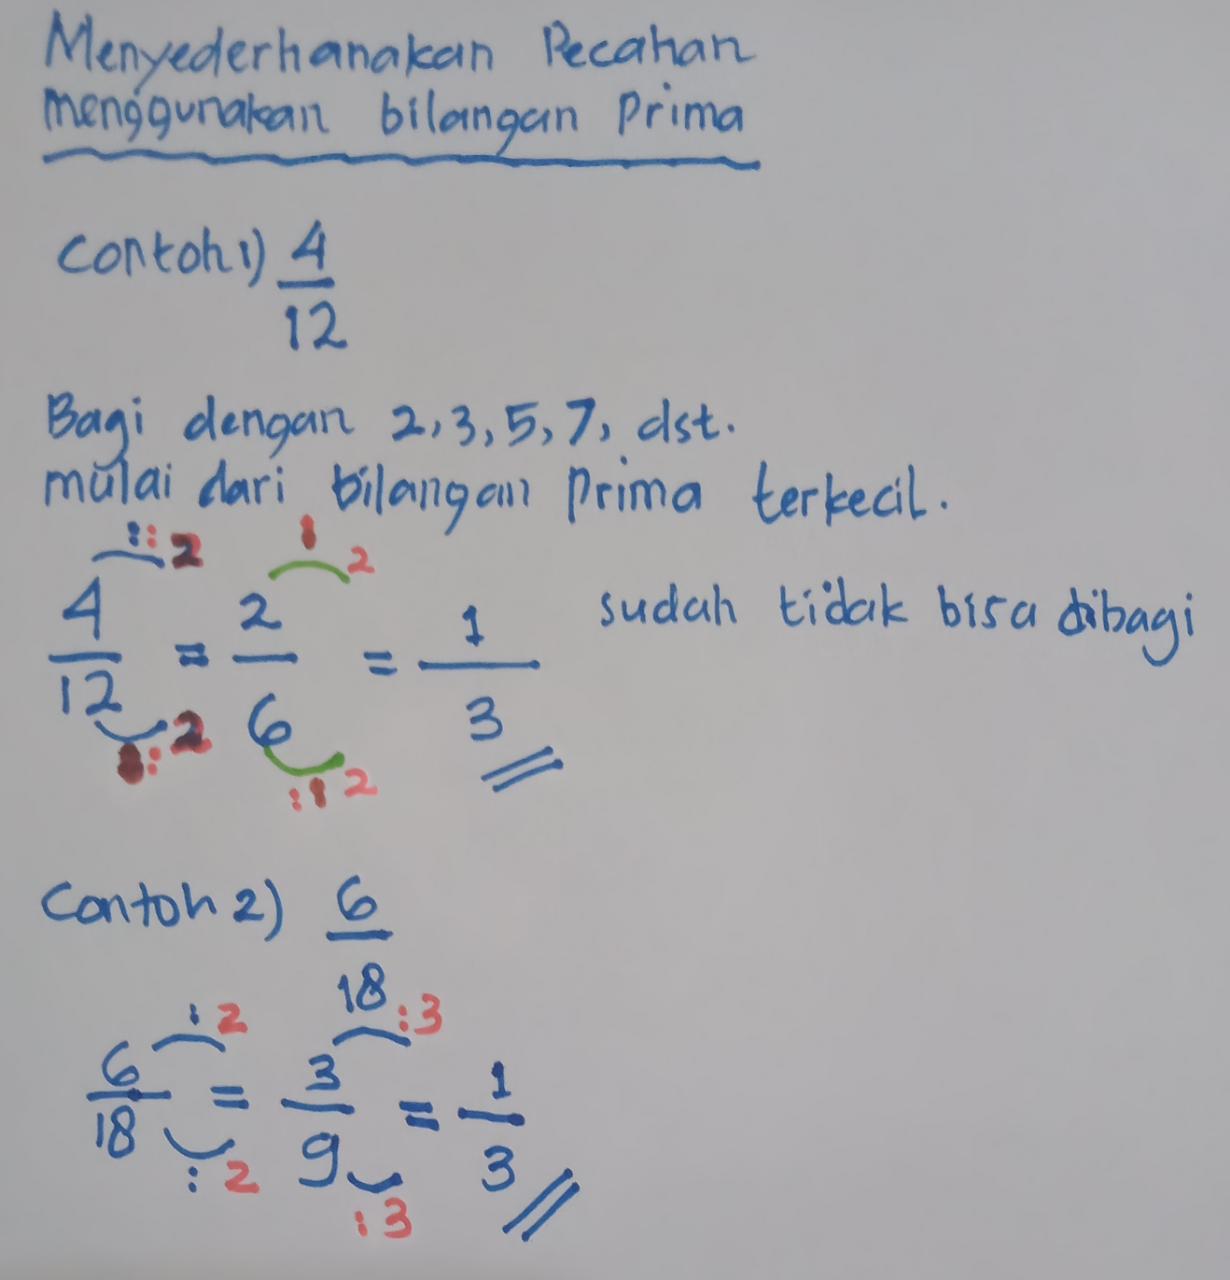 Menyederhanakan Pecahan
menggunakan bilangan Prima
Contoh 1) 4/12
Bagi dengan 2, 3, 5, 7, dst.
mulai dari bilangan Prima terkecil.
: : 2 2
4/12 = 2/6 = 1/3 sudah tidak bisa dibagi
: 2 : 2
Contoh 2) 6/18
: 2 : 3
6/18 = 3/9 = 1/3
: 2 : 3